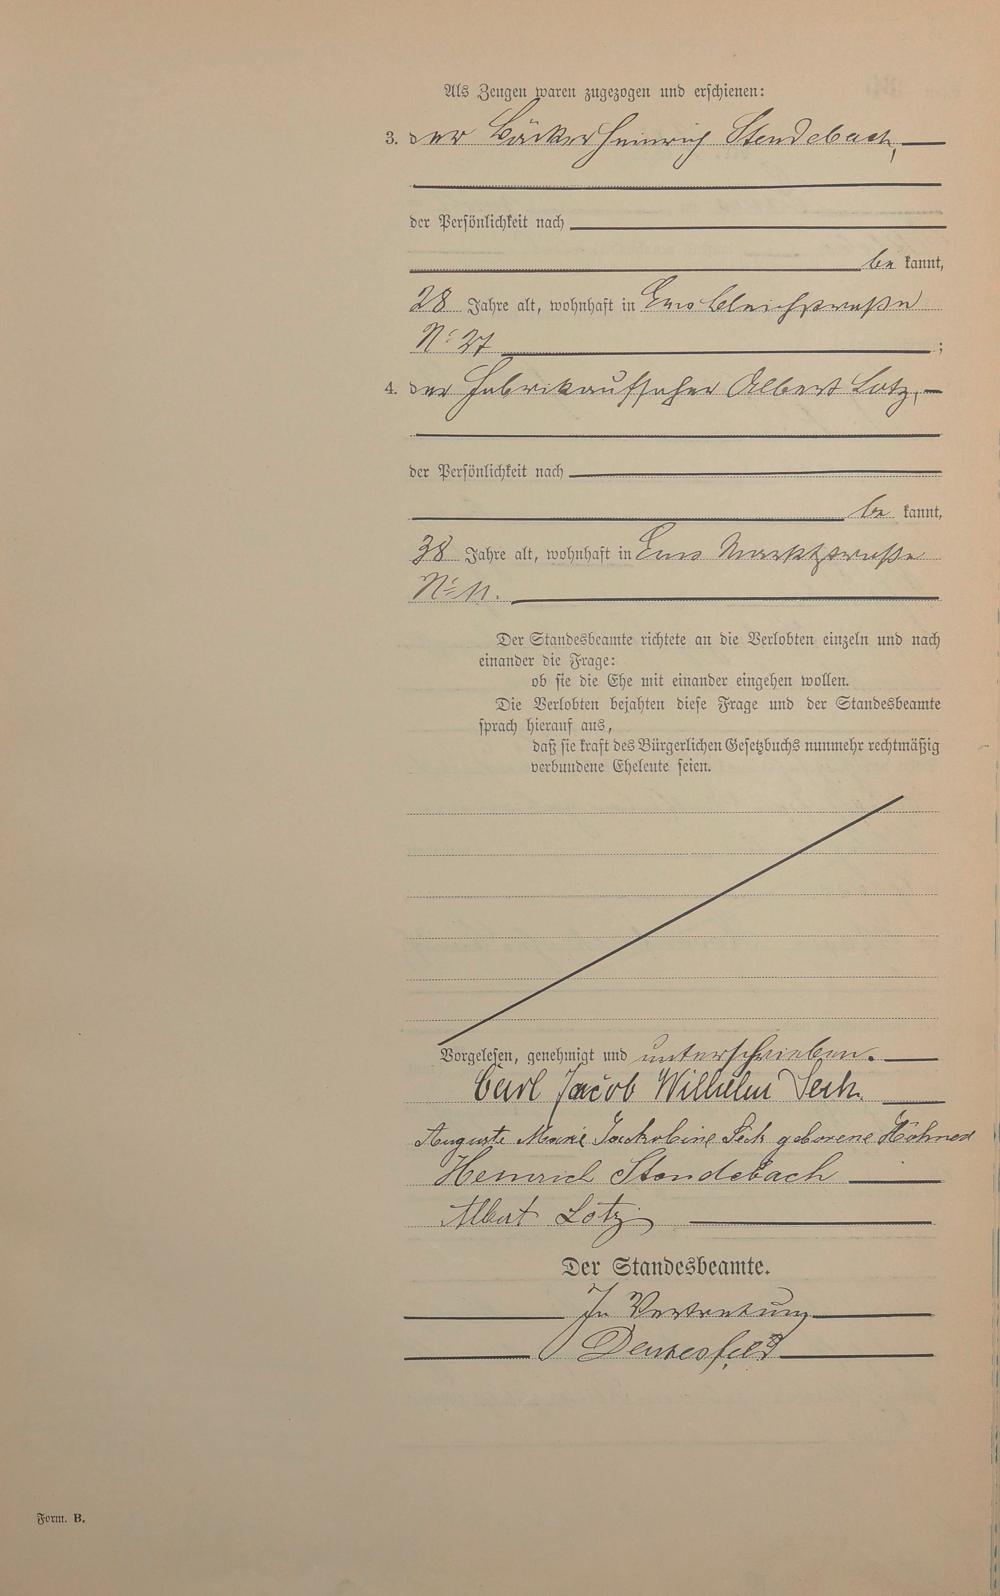 Als Zeugen waren zugezogen und erschienen:
3. der Bäcker Heinrich Stendebach,
der Persönlichkeit nach
be kannt,
28 Jahre alt, wohnhaft in Ems Bleichstraße
No 27 ;
4. der Fabrikaufseher Albert Lotz,
der Persönlichkeit nach
be kannt,
38 Jahre alt, wohnhaft in Ems Marktstraße
No 11.
Der Standesbeamte richtete an die Verlobten einzeln und nach
einander die Frage:
ob sie die Ehe mit einander eingehen wollen.
Die Verlobten bejahten diese Frage und der Standesbeamte
sprach hierauf aus,
daß sie kraft des Bürgerlichen Gesetzbuchs nunmehr rechtmäßig
verbundene Eheleute seien.
Vorgelesen, genehmigt und unterschrieben.
Carl Jacob Wilhelm
Auguste Marie Jackobine geborene Höhner
Heinrich Stendebach
Albert Lotz
Der Standesbeamte.
In Vertretung
Form. B.